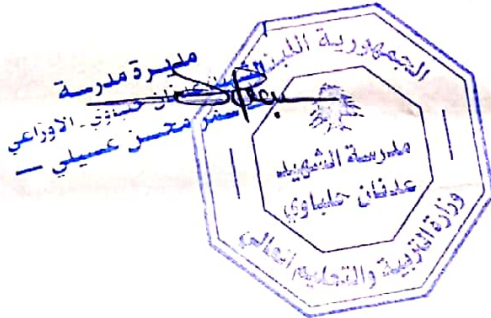 مديرة مدرسة
الشهيد عدنان حلباوي - الاوزاعي
محسن عسيلي
الجمهورية اللبنانية
مدرسة الشهيد
عدنان حلباوي
وزارة التربية والتعليم العالي